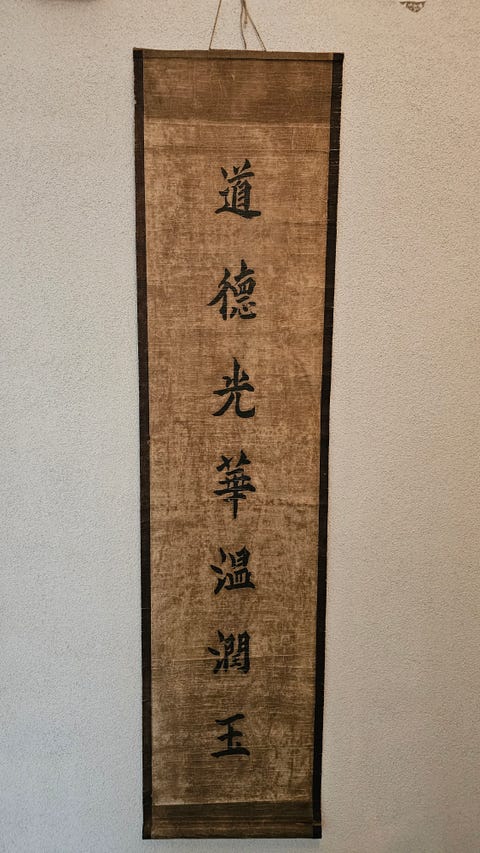 道德光華溫潤玉